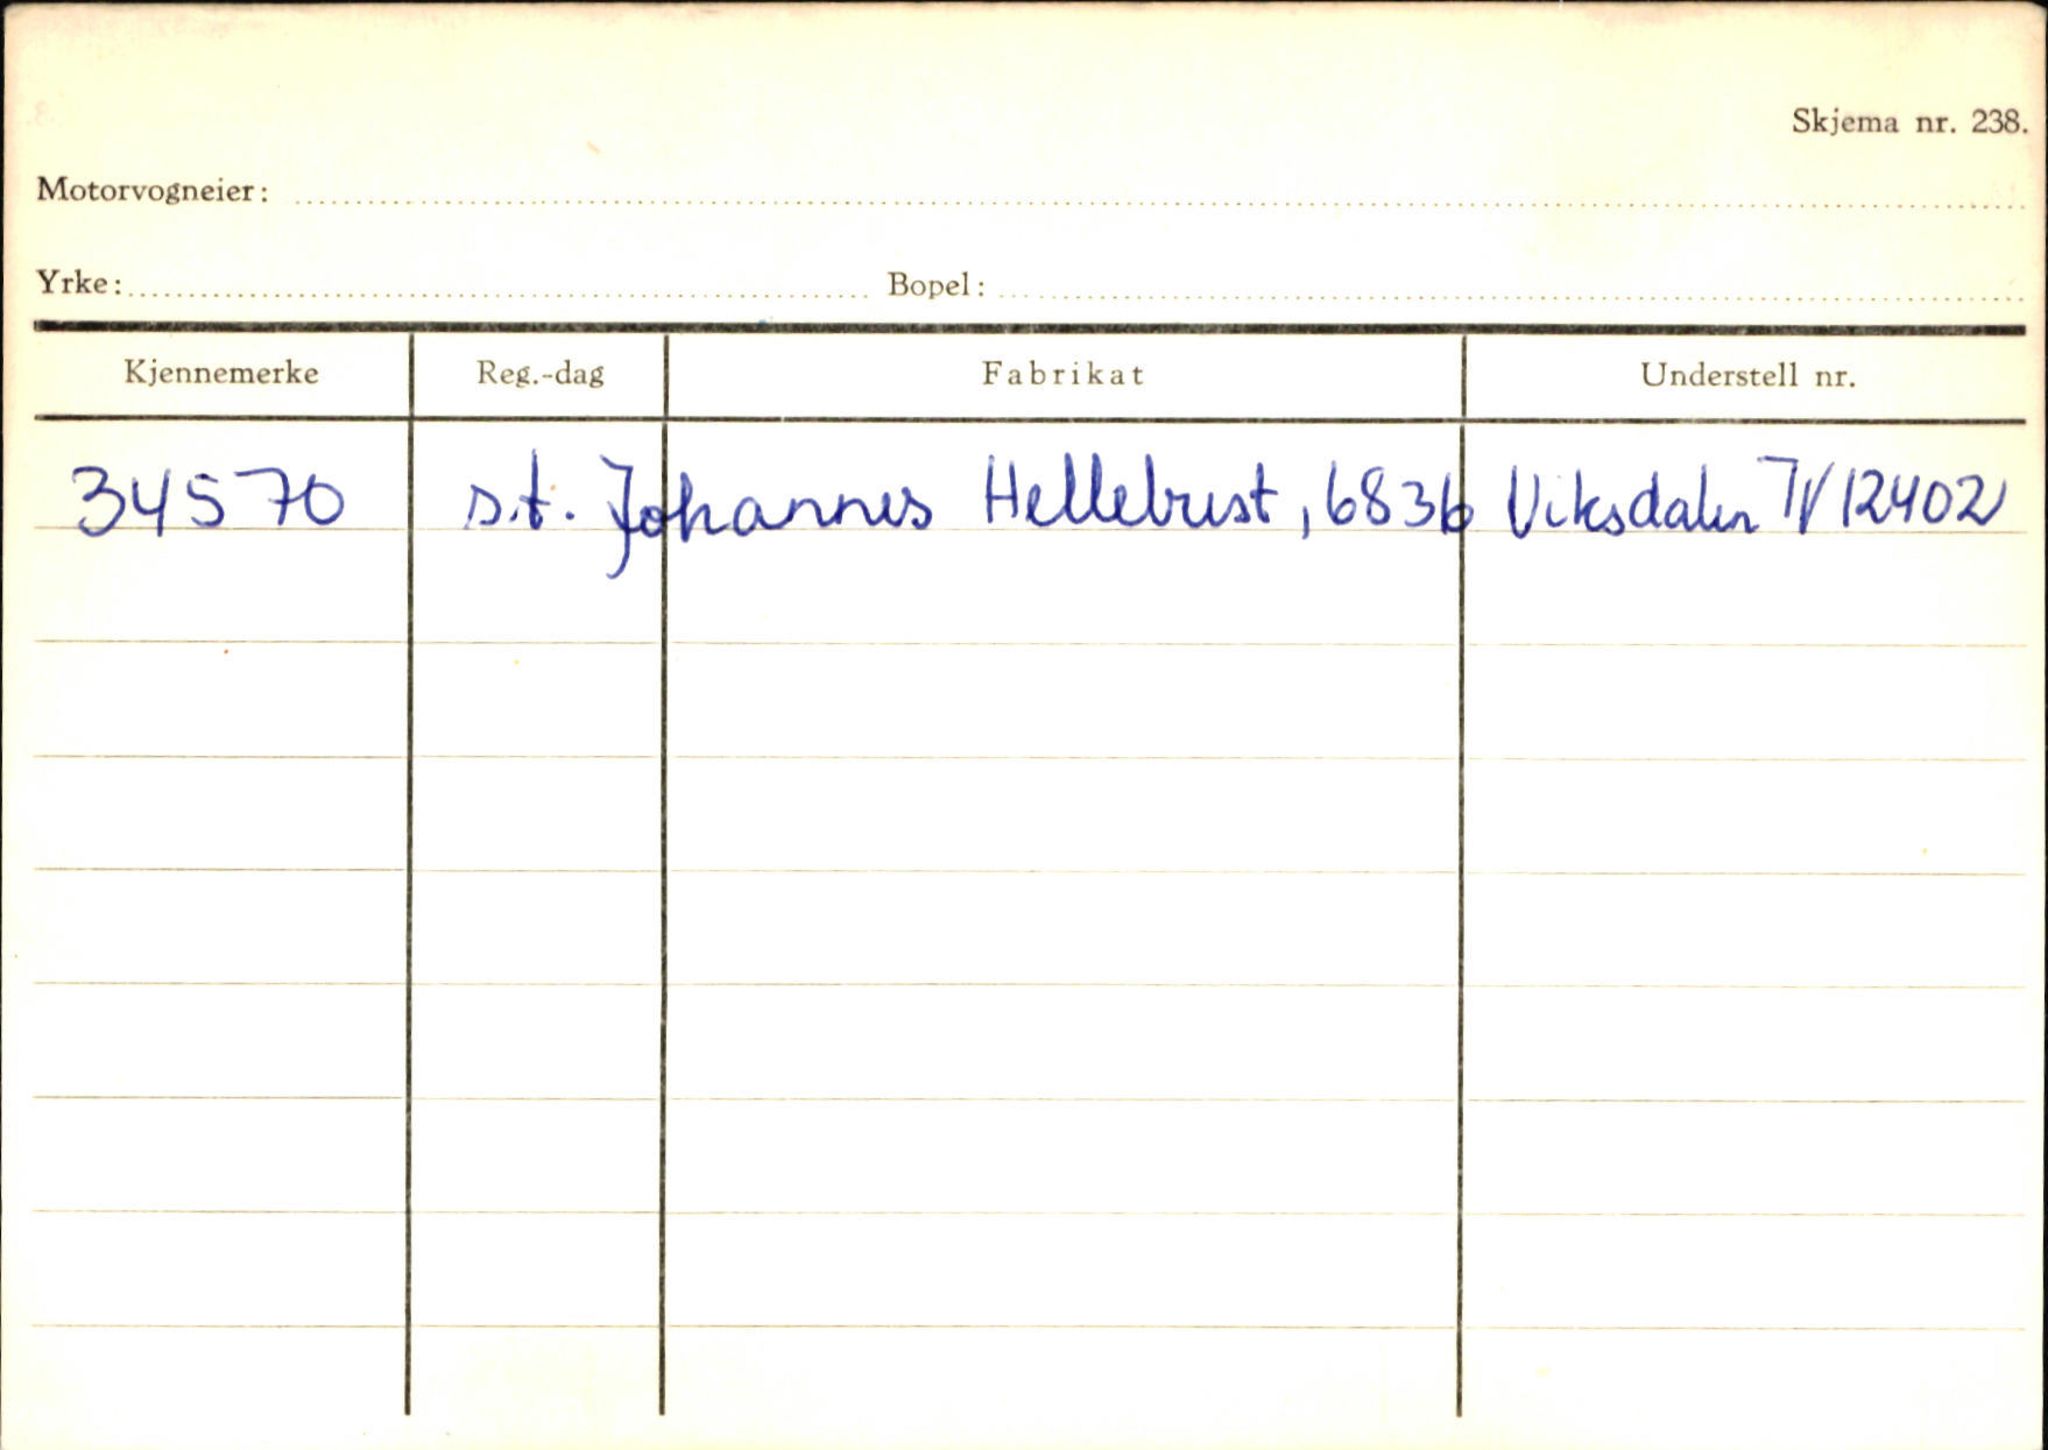 Skjema nr. 238.
Motorvogneier:
Yrke: Bopel:
Kjennemerke Reg.-dag Fabrikat Understell nr.
34570 s.t. Johannes Hellebust, 6836 Viksdalen 12402